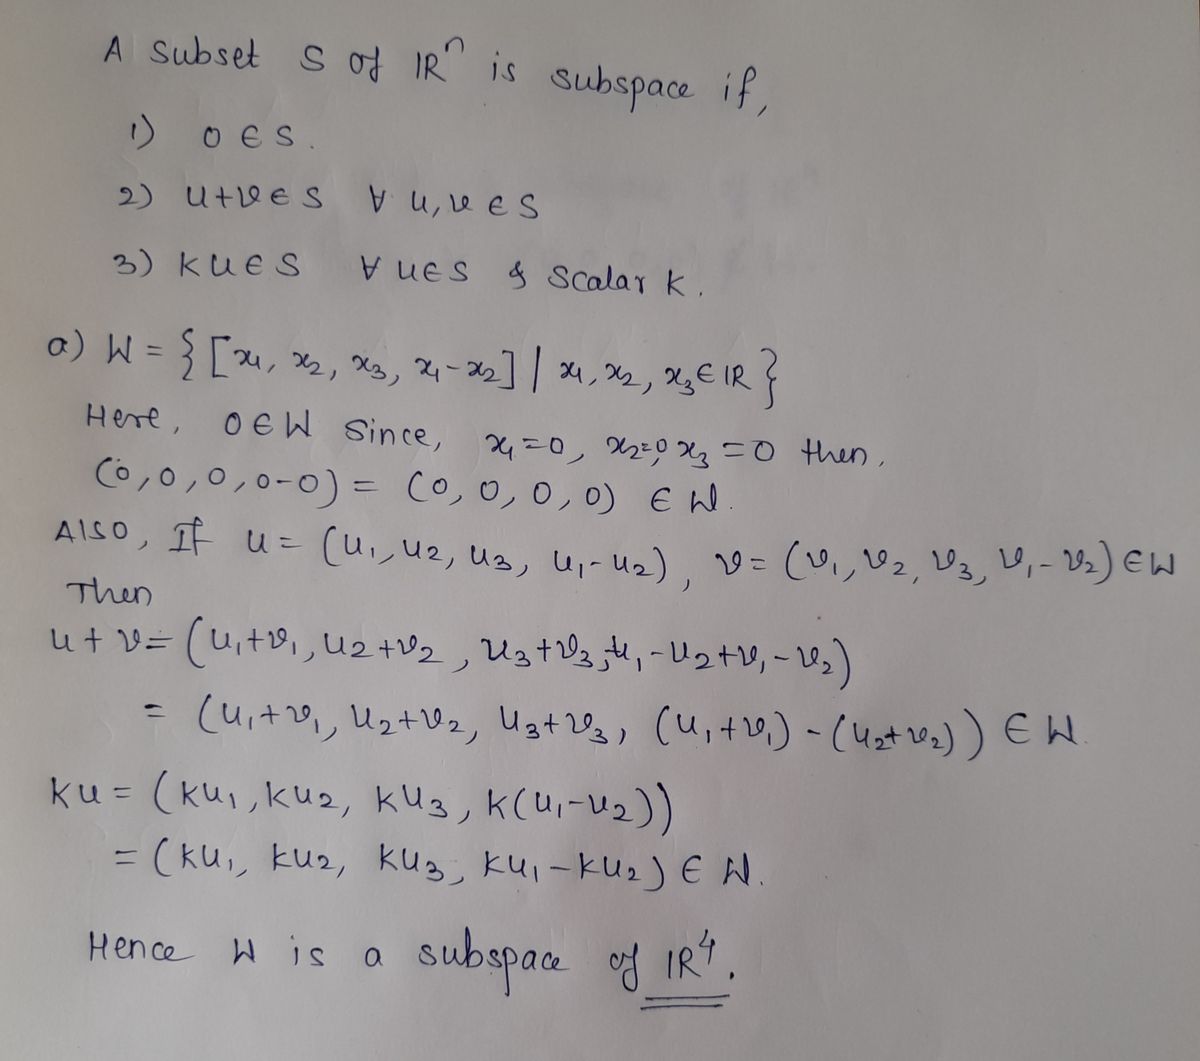 A subset S of ℝⁿ is subspace if,
1) 0 ∈ S.
2) u+v ∈ S ∀ u, v ∈ S
3) ku ∈ S ∀ u ∈ S & Scalar k.
a) W = { [x₁, x₂, x₃, x₁-x₂] | x₁, x₂, x₃ ∈ ℝ }
Here, 0 ∈ W Since, x₁=0, x₂=0, x₃=0 then,
(0,0,0,0-0) = (0,0,0,0) ∈ W.
Also, If u = (u₁, u₂, u₃, u₁-u₂), v = (v₁, v₂, v₃, v₁-v₂) ∈ W
Then
u+v = (u₁+v₁, u₂+v₂, u₃+v₃, u₁-u₂+v₁-v₂)
= (u₁+v₁, u₂+v₂, u₃+v₃, (u₁+v₁)-(u₂+v₂)) ∈ W.
ku = (ku₁, ku₂, ku₃, k(u₁-u₂))
= (ku₁, ku₂, ku₃, ku₁-ku₂) ∈ W.
Hence W is a subspace of ℝ⁴.